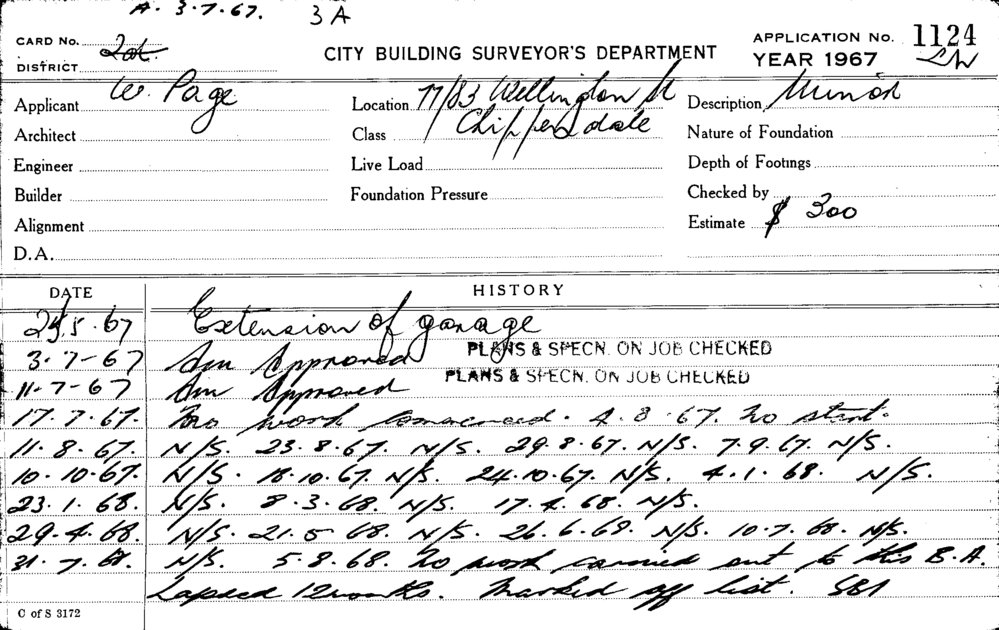 A. 3.7.67. 3A
CARD No. 2d.
DISTRICT
CITY BUILDING SURVEYOR'S DEPARTMENT
APPLICATION No. 1124
YEAR 1967
Applicant W. Page
Location 77/83 Wellington St
Description Minor
Architect
Class Chippendale
Nature of Foundation
Engineer
Live Load
Depth of Footings
Builder
Foundation Pressure
Checked by
Alignment
Estimate $ 300
D.A.
DATE HISTORY
.5.67 Extension of garage
3.7-67 Approved PLANS & SPECN. ON JOB CHECKED
11.7-67 Approved PLANS & SPECN. ON JOB CHECKED
17.7.67. No work commenced. 4.8.67. No start.
11.8.67. N/S. 23.8.67. N/S. 29.8.67. N/S. 7.9.67. N/S.
10.10.67. N/S. 18.10.67. N/S. 24.10.67. N/S. 4.1.68. N/S.
23.1.68. N/S. 8.3.68. N/S. 17.4.68. N/S.
29.4.68. N/S. 21.5.68. N/S. 26.6.68. N/S. 10.7.68. N/S.
31.7.68. N/S. 5.8.68. No work carried out to this B.A.
Lapsed 12 months. Marked off list.
C of S 3172